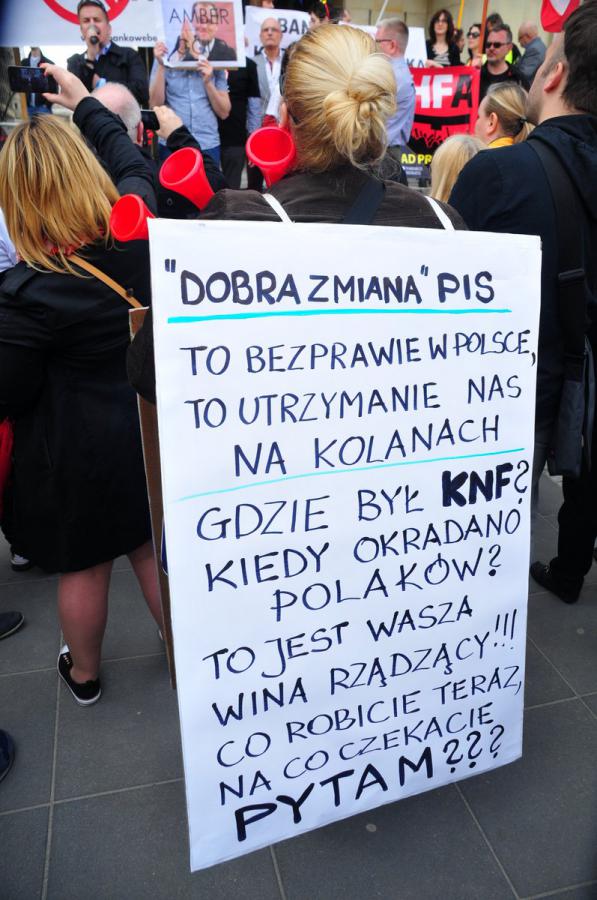 bankowebe
AMBER
BAN
KO
HFA
AD PR
"DOBRA ZMIANA" PIS
TO BEZPRAWIE W POLSCE,
TO UTRZYMANIE NAS
NA KOLANACH
GDZIE BYŁ KNF?
KIEDY OKRADANO
POLAKÓW?
TO JEST WASZA
WINA RZĄDZĄCY!!!
CO ROBICIE TERAZ,
NA CO CZEKACIE
PYTAM???